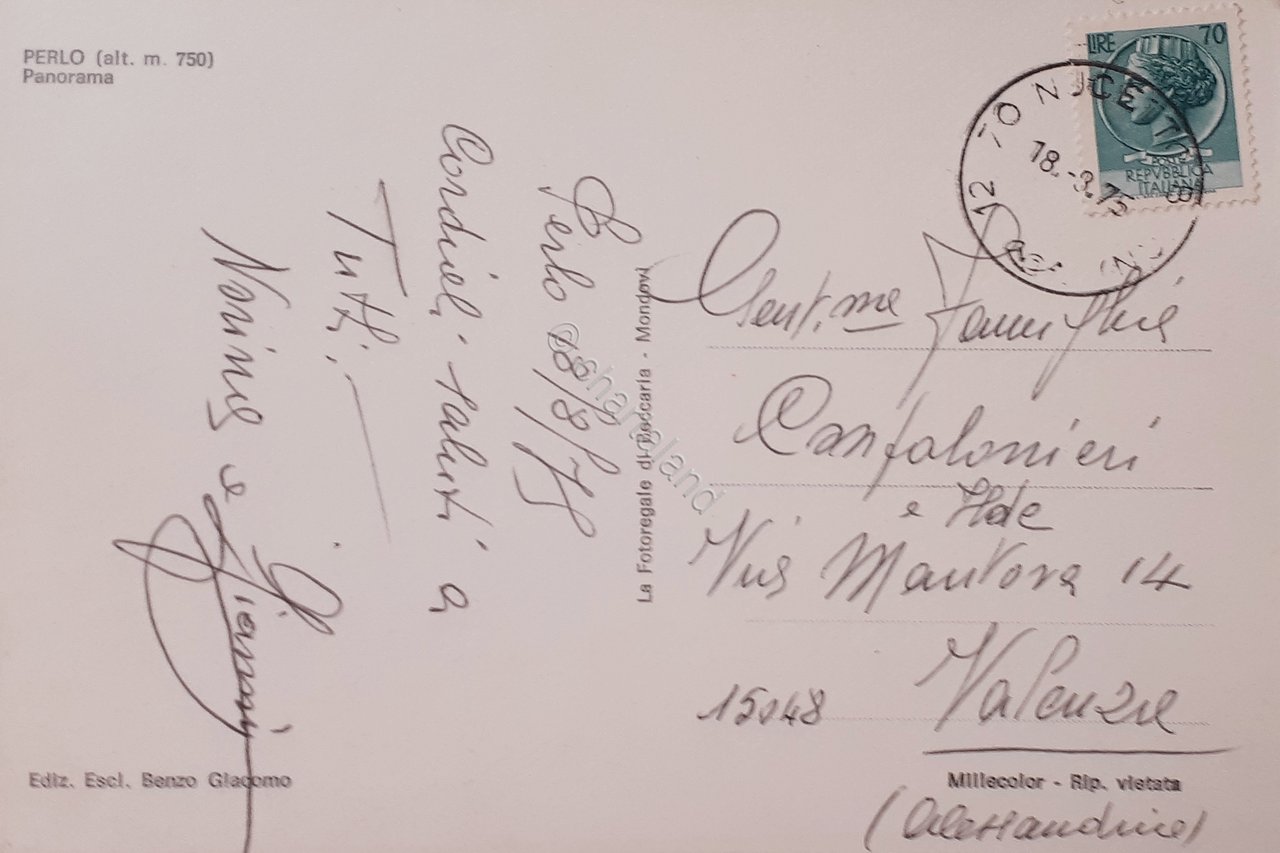 PERLO (alt. m. 750)
Panorama
Perlo 18/8/75
Cordiali saluti a
Tutti.
Norina e
Gianni
La Fotoregale di Beccaria - Mondovì
Chartaland
LIRE 70
POSTE
REPVBBLICA
ITALIANA
NUCETTO
18.-8.75
12
Gent.ma Famiglia
Confalonieri
e Ilde
Via Mantova 14
15048 Valenza
(Alessandria)
Ediz. Escl. Benzo Giacomo
Millecolor - Rip. vietata